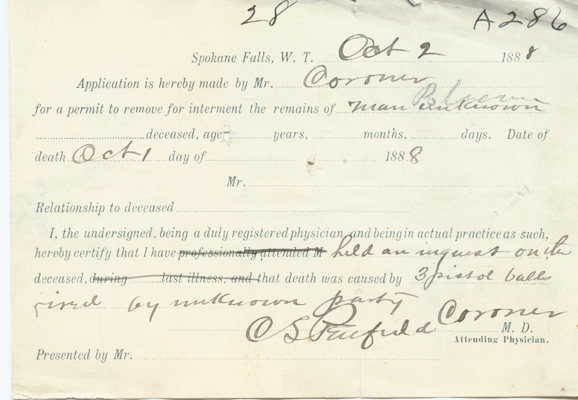 28 A286
Spokane Falls, W. T. Oct 2 1888
Application is hereby made by Mr. Coroner
for a permit to remove for interment the remains of man unknown
deceased, age years, months, days. Date of
death Oct 1 day of 1888
Mr.
Relationship to deceased
I, the undersigned, being a duly registered physician, and being in actual practice as such,
hereby certify that I have professionally attended M held an inquest on the
deceased, during last illness, and that death was caused by 3 pistol balls
fired by unknown party
C S Penfield Coroner
M. D.
Attending Physician.
Presented by Mr.